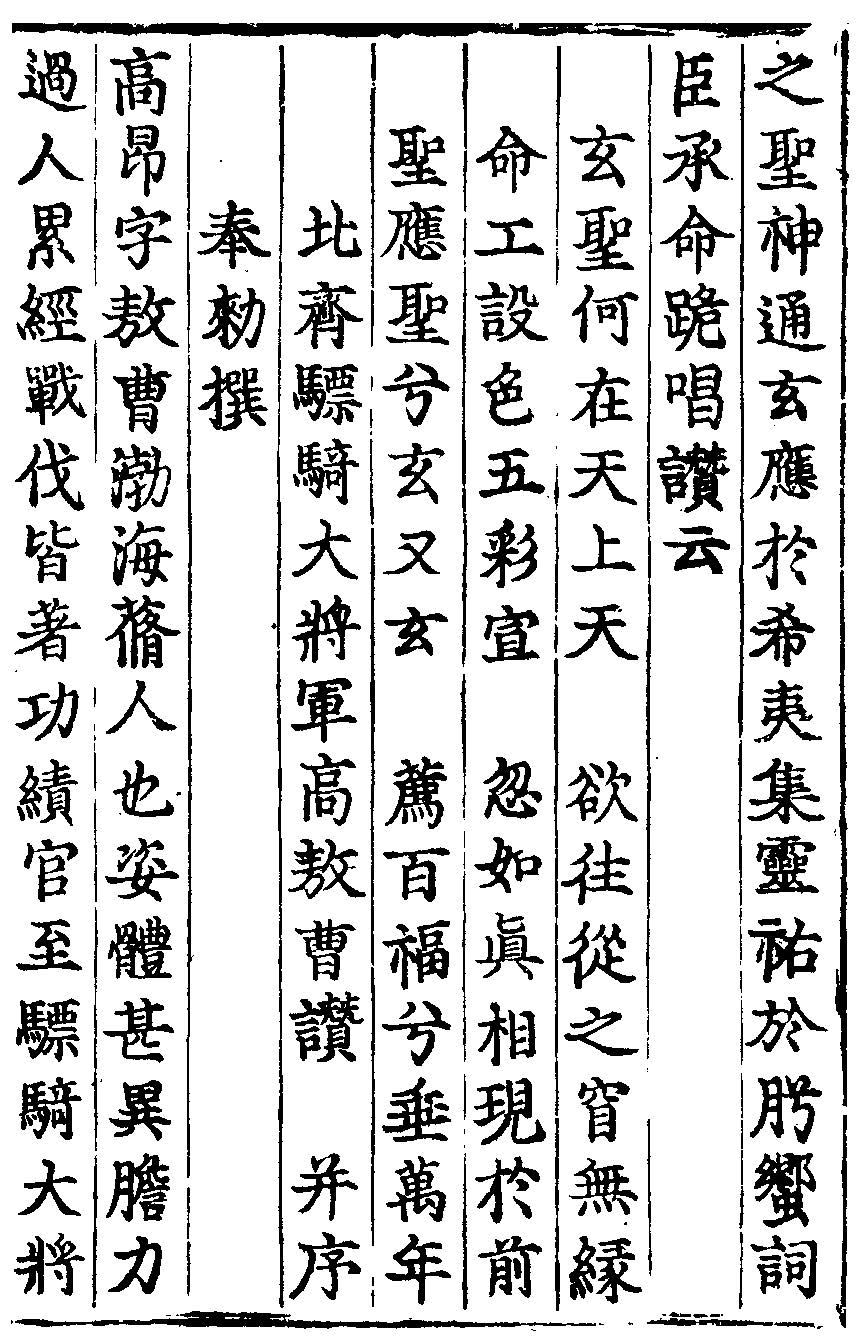 之聖神通玄應於希夷集靈祐於肹蠁詞
臣承命跪唱讃云
玄聖何在天上天　欲往從之窅無縁
命工設色五彩宣　忽如眞相現於前
聖應聖兮玄又玄　薦百福兮垂萬年
北齊驃騎大將軍高敖曹讃　并序
奉勑撰
高昂字敖曹渤海蓨人也姿體甚異膽力
過人累經戰伐皆著功績官至驃騎大將